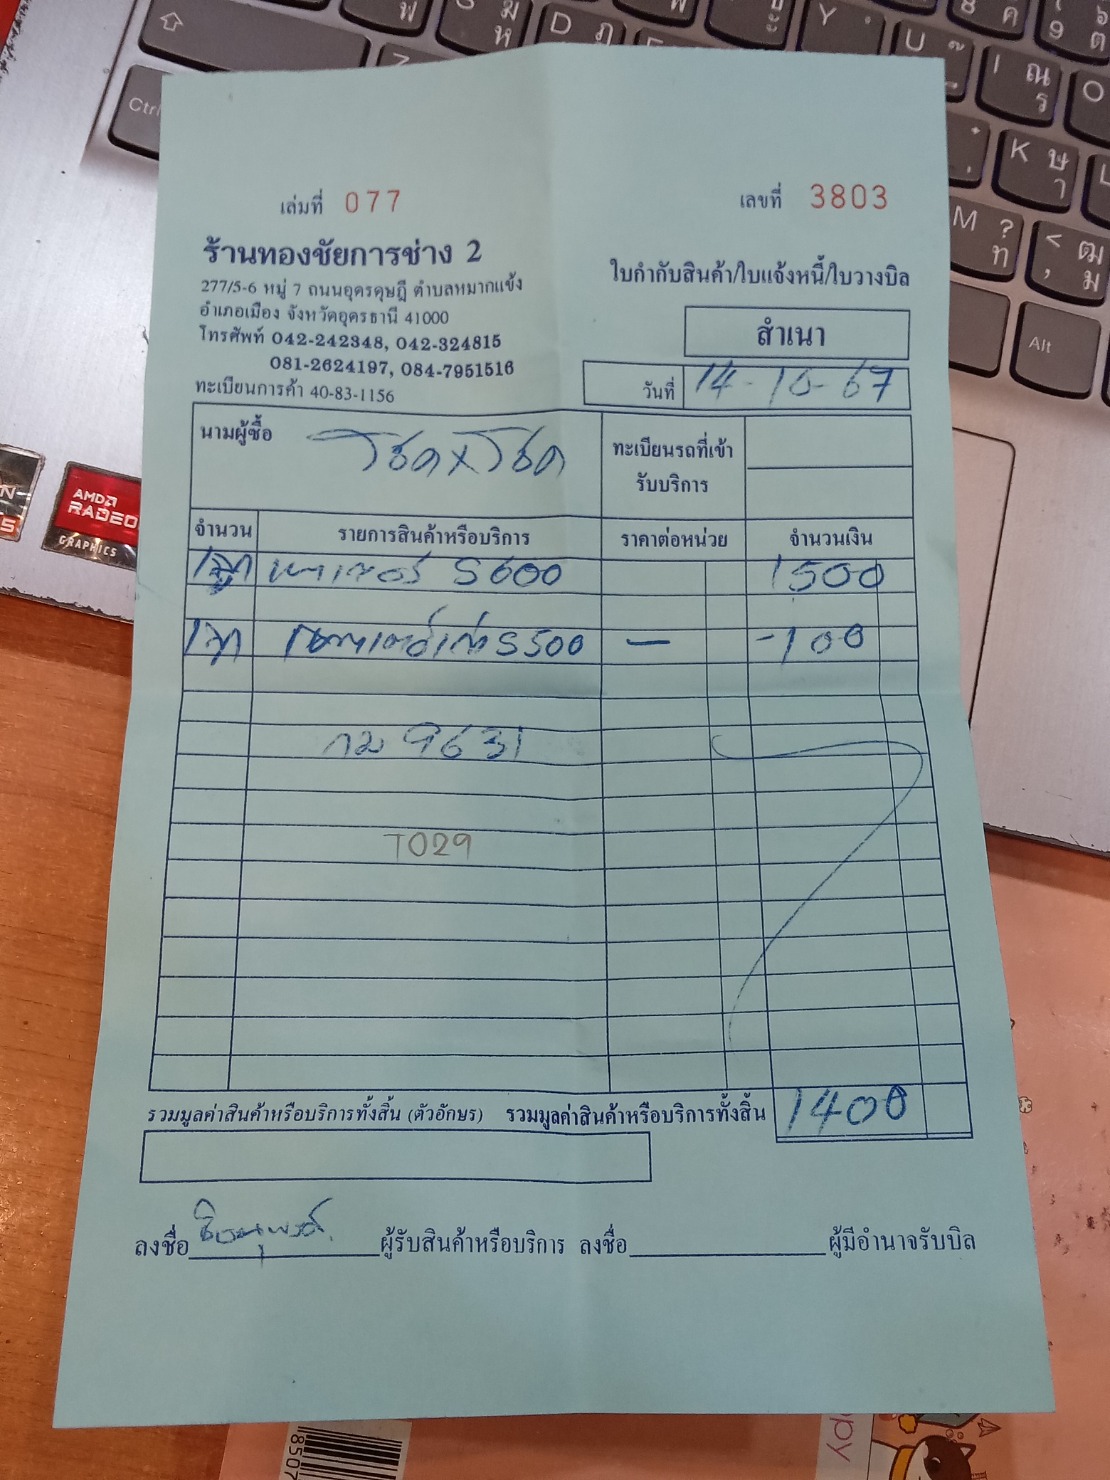 เล่มที่ 077
เลขที่ 3803
ร้านทองชัยการช่าง 2
277/5-6 หมู่ 7 ถนนอุดรดุษฎี ตำบลหมากแข้ง
อำเภอเมือง จังหวัดอุดรธานี 41000
โทรศัพท์ 042-242348, 042-324815
081-2624197, 084-7951516
ทะเบียนการค้า 40-83-1156
ใบกำกับสินค้า/ใบแจ้งหนี้/ใบวางบิล
สำเนา
วันที่ 14-10-67
นามผู้ซื้อ โชคxโชค
ทะเบียนรถที่เข้า
รับบริการ
จำนวน รายการสินค้าหรือบริการ ราคาต่อหน่วย จำนวนเงิน
1ลูก S600 1500
1ลูก S500 — -100
กม 9631
T029
รวมมูลค่าสินค้าหรือบริการทั้งสิ้น (ตัวอักษร) รวมมูลค่าสินค้าหรือบริการทั้งสิ้น 1400
ลงชื่อ ผู้รับสินค้าหรือบริการ ลงชื่อ ผู้มีอำนาจรับบิล
AMD
RADEON
GRAPHICS
Ctrl
Alt